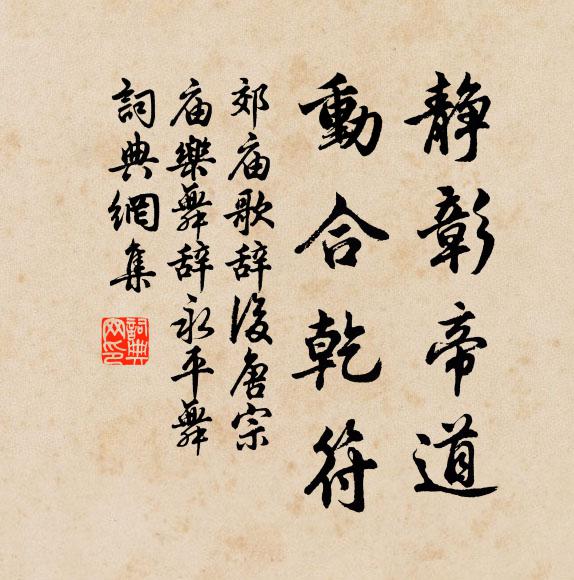 静彰帝道
動合乾符
郊庙歌辞後唐宗
庙樂舞辞永平舞
詞典網集
詞典網印